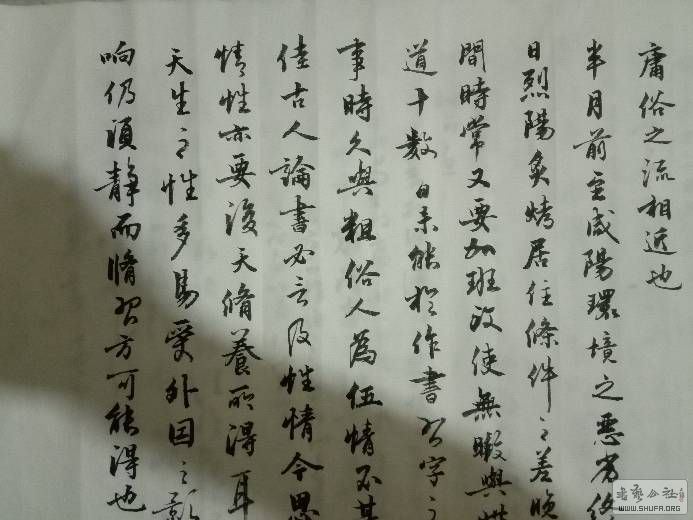 庸俗之流相近也
半月前至咸陽環境之惡劣終
日烈陽炙烤居住條件之差晚
間時常又要加班致使無暇與
道十數日未能於作書習字之
事時久與粗俗人為伍情不甚
佳古人論書必言及性情今思
情性亦要後天脩養所得耳
天生之性多易受外因之影
响仍須靜而脩習方可能得也
書藝公社
WWW.SHUFA.ORG